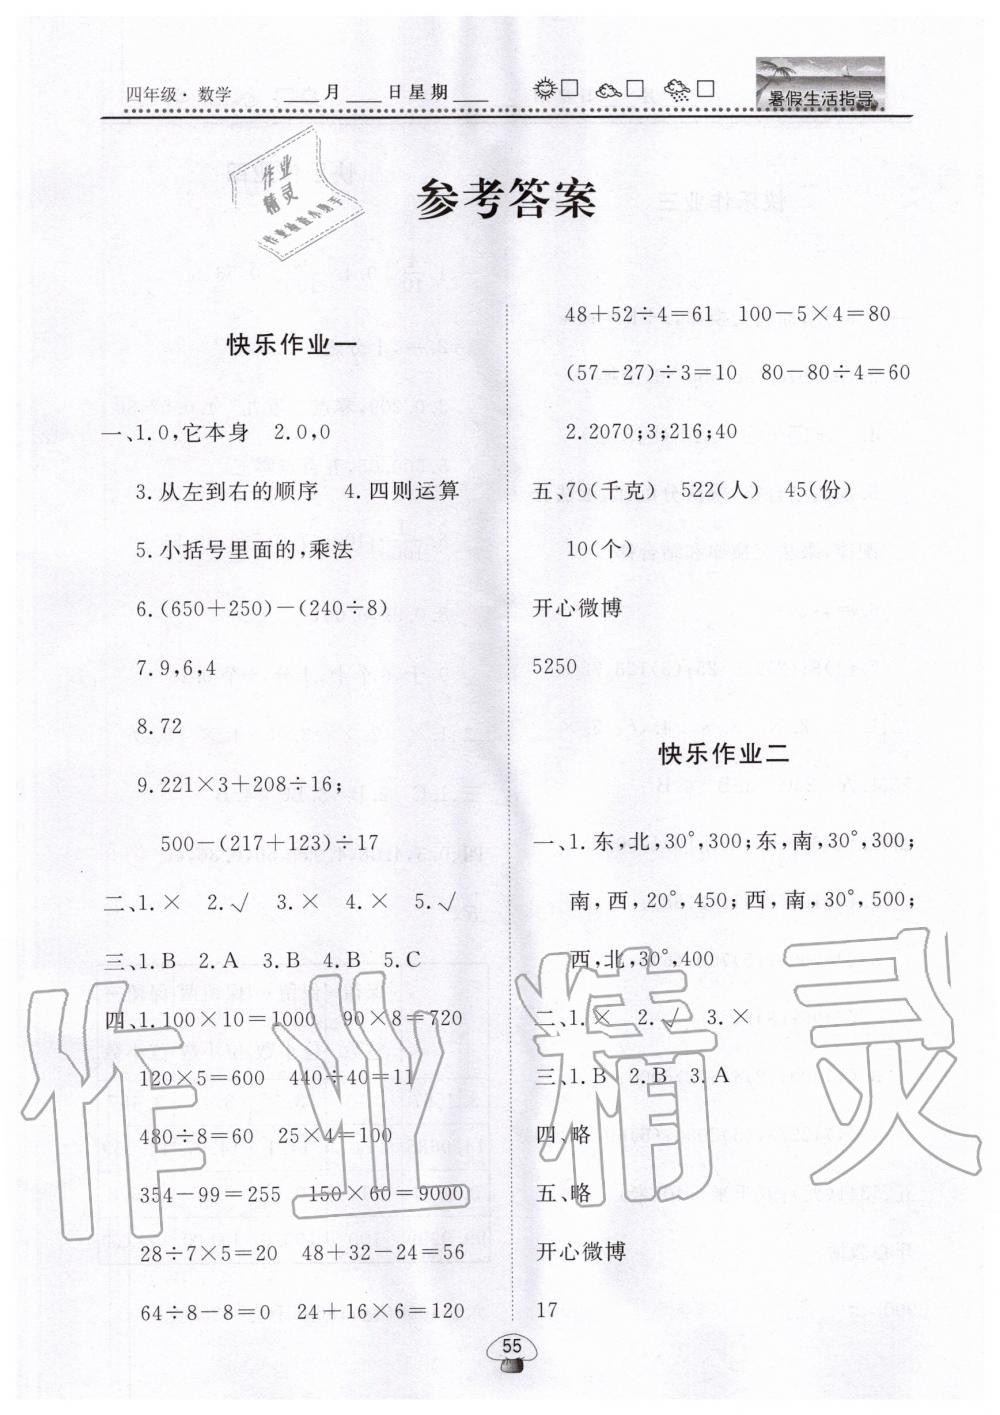 四年级·数学 ____月____日星期____
暑假生活指导
作业
精灵
作业检查小助手
参考答案
快乐作业一
一、1.0,它本身 2.0,0
3.从左到右的顺序 4.四则运算
5.小括号里面的,乘法
6.(650+250)-(240÷8)
7.9,6,4
8.72
9.221×3+208÷16;
500-(217+123)÷17
二、1.× 2.√ 3.× 4.× 5.√
三、1.B 2.A 3.B 4.B 5.C
四、1.100×10=1000 90×8=720
120×5=600 440÷40=11
480÷8=60 25×4=100
354-99=255 150×60=9000
28÷7×5=20 48+32-24=56
64÷8-8=0 24+16×6=120
48+52÷4=61 100-5×4=80
(57-27)÷3=10 80-80÷4=60
2.2070;3;216;40
五、70(千克) 522(人) 45(份)
10(个)
开心微博
5250
快乐作业二
一、1.东,北,30°,300;东,南,30°,300;
南,西,20°,450;西,南,30°,500;
西,北,30°,400
二、1.× 2.√ 3.×
三、1.B 2.B 3.A
四、略
五、略
开心微博
17
55
作业精灵